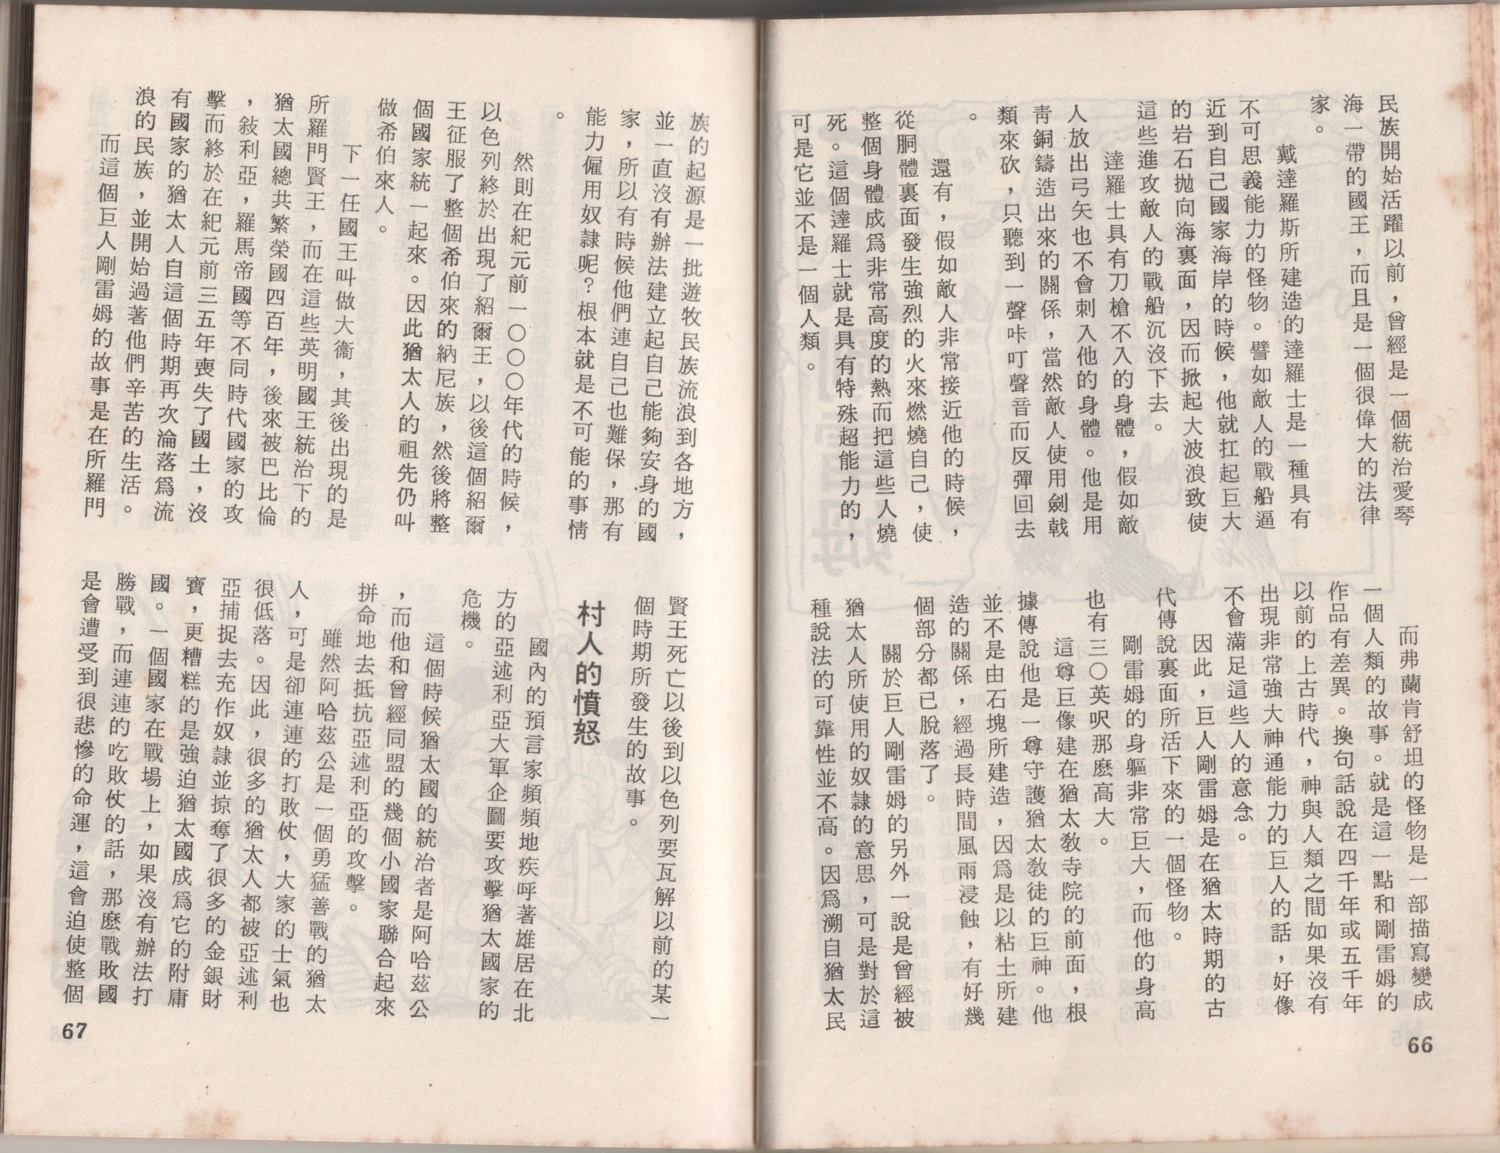 民族開始活躍以前，曾經是一個統治愛琴
海一帶的國王，而且是一個很偉大的法律
家。
戴達羅斯所建造的達羅士是一種具有
不可思義能力的怪物。譬如敵人的戰船逼
近到自己國家海岸的時候，他就扛起巨大
的岩石拋向海裏面，因而掀起大波浪致使
這些進攻敵人的戰船沉沒下去。
達羅士具有刀槍不入的身體，假如敵
人放出弓矢也不會刺入他的身體。他是用
青銅鑄造出來的關係，當然敵人使用劍戟
類來砍，只聽到一聲咔叮聲音而反彈回去
。
還有，假如敵人非常接近他的時候，
從胴體裏面發生強烈的火來燃燒自己，使
整個身體成爲非常高度的熱而把這些人燒
死。這個達羅士就是具有特殊超能力的，
可是它並不是一個人類。
而弗蘭肯舒坦的怪物是一部描寫變成
一個人類的故事。就是這一點和剛雷姆的
作品有差異。換句話說在四千年或五千年
以前的上古時代，神與人類之間如果沒有
出現非常強大神通能力的巨人的話，好像
不會滿足這些人的意念。
因此，巨人剛雷姆是在猶太時期的古
代傳說裏面所活下來的一個怪物。
剛雷姆的身軀非常巨大，而他的身高
也有三〇英呎那麽高大。
這尊巨像建在猶太教寺院的前面，根
據傳說他是一尊守護猶太教徒的巨神。他
並不是由石塊所建造，因爲是以粘土所建
造的關係，經過長時間風雨浸蝕，有好幾
個部分都已脫落了。
關於巨人剛雷姆的另外一說是曾經被
猶太人所使用的奴隸的意思，可是對於這
種說法的可靠性並不高。因爲溯自猶太民
66
族的起源是一批遊牧民族流浪到各地方，
並一直沒有辦法建立起自己能夠安身的國
家，所以有時候他們連自己也難保，那有
能力僱用奴隸呢？根本就是不可能的事情
。
然則在紀元前一〇〇〇年代的時候，
以色列終於出現了紹爾王，以後這個紹爾
王征服了整個希伯來的納尼族，然後將整
個國家統一起來。因此猶太人的祖先仍叫
做希伯來人。
下一任國王叫做大衞，其後出現的是
所羅門賢王，而在這些英明國王統治下的
猶太國總共繁榮國四百年，後來被巴比倫
，敍利亞，羅馬帝國等不同時代國家的攻
擊而終於在紀元前三五年喪失了國土，沒
有國家的猶太人自這個時期再次淪落爲流
浪的民族，並開始過著他們辛苦的生活。
而這個巨人剛雷姆的故事是在所羅門
賢王死亡以後到以色列要瓦解以前的某一
個時期所發生的故事。
村人的憤怒
國內的預言家頻頻地疾呼著雄居在北
方的亞述利亞大軍企圖要攻擊猶太國家的
危機。
這個時候猶太國的統治者是阿哈茲公
，而他和曾經同盟的幾個小國家聯合起來
拼命地去抵抗亞述利亞的攻擊。
雖然阿哈茲公是一個勇猛善戰的猶太
人，可是卻連連的打敗仗，大家的士氣也
很低落。因此，很多的猶太人都被亞述利
亞捕捉去充作奴隸並掠奪了很多的金銀財
寶，更糟糕的是強迫猶太國成爲它的附庸
國。一個國家在戰場上，如果沒有辦法打
勝戰，而連連的吃敗仗的話，那麽戰敗國
是會遭受到很悲慘的命運，這會迫使整個
67